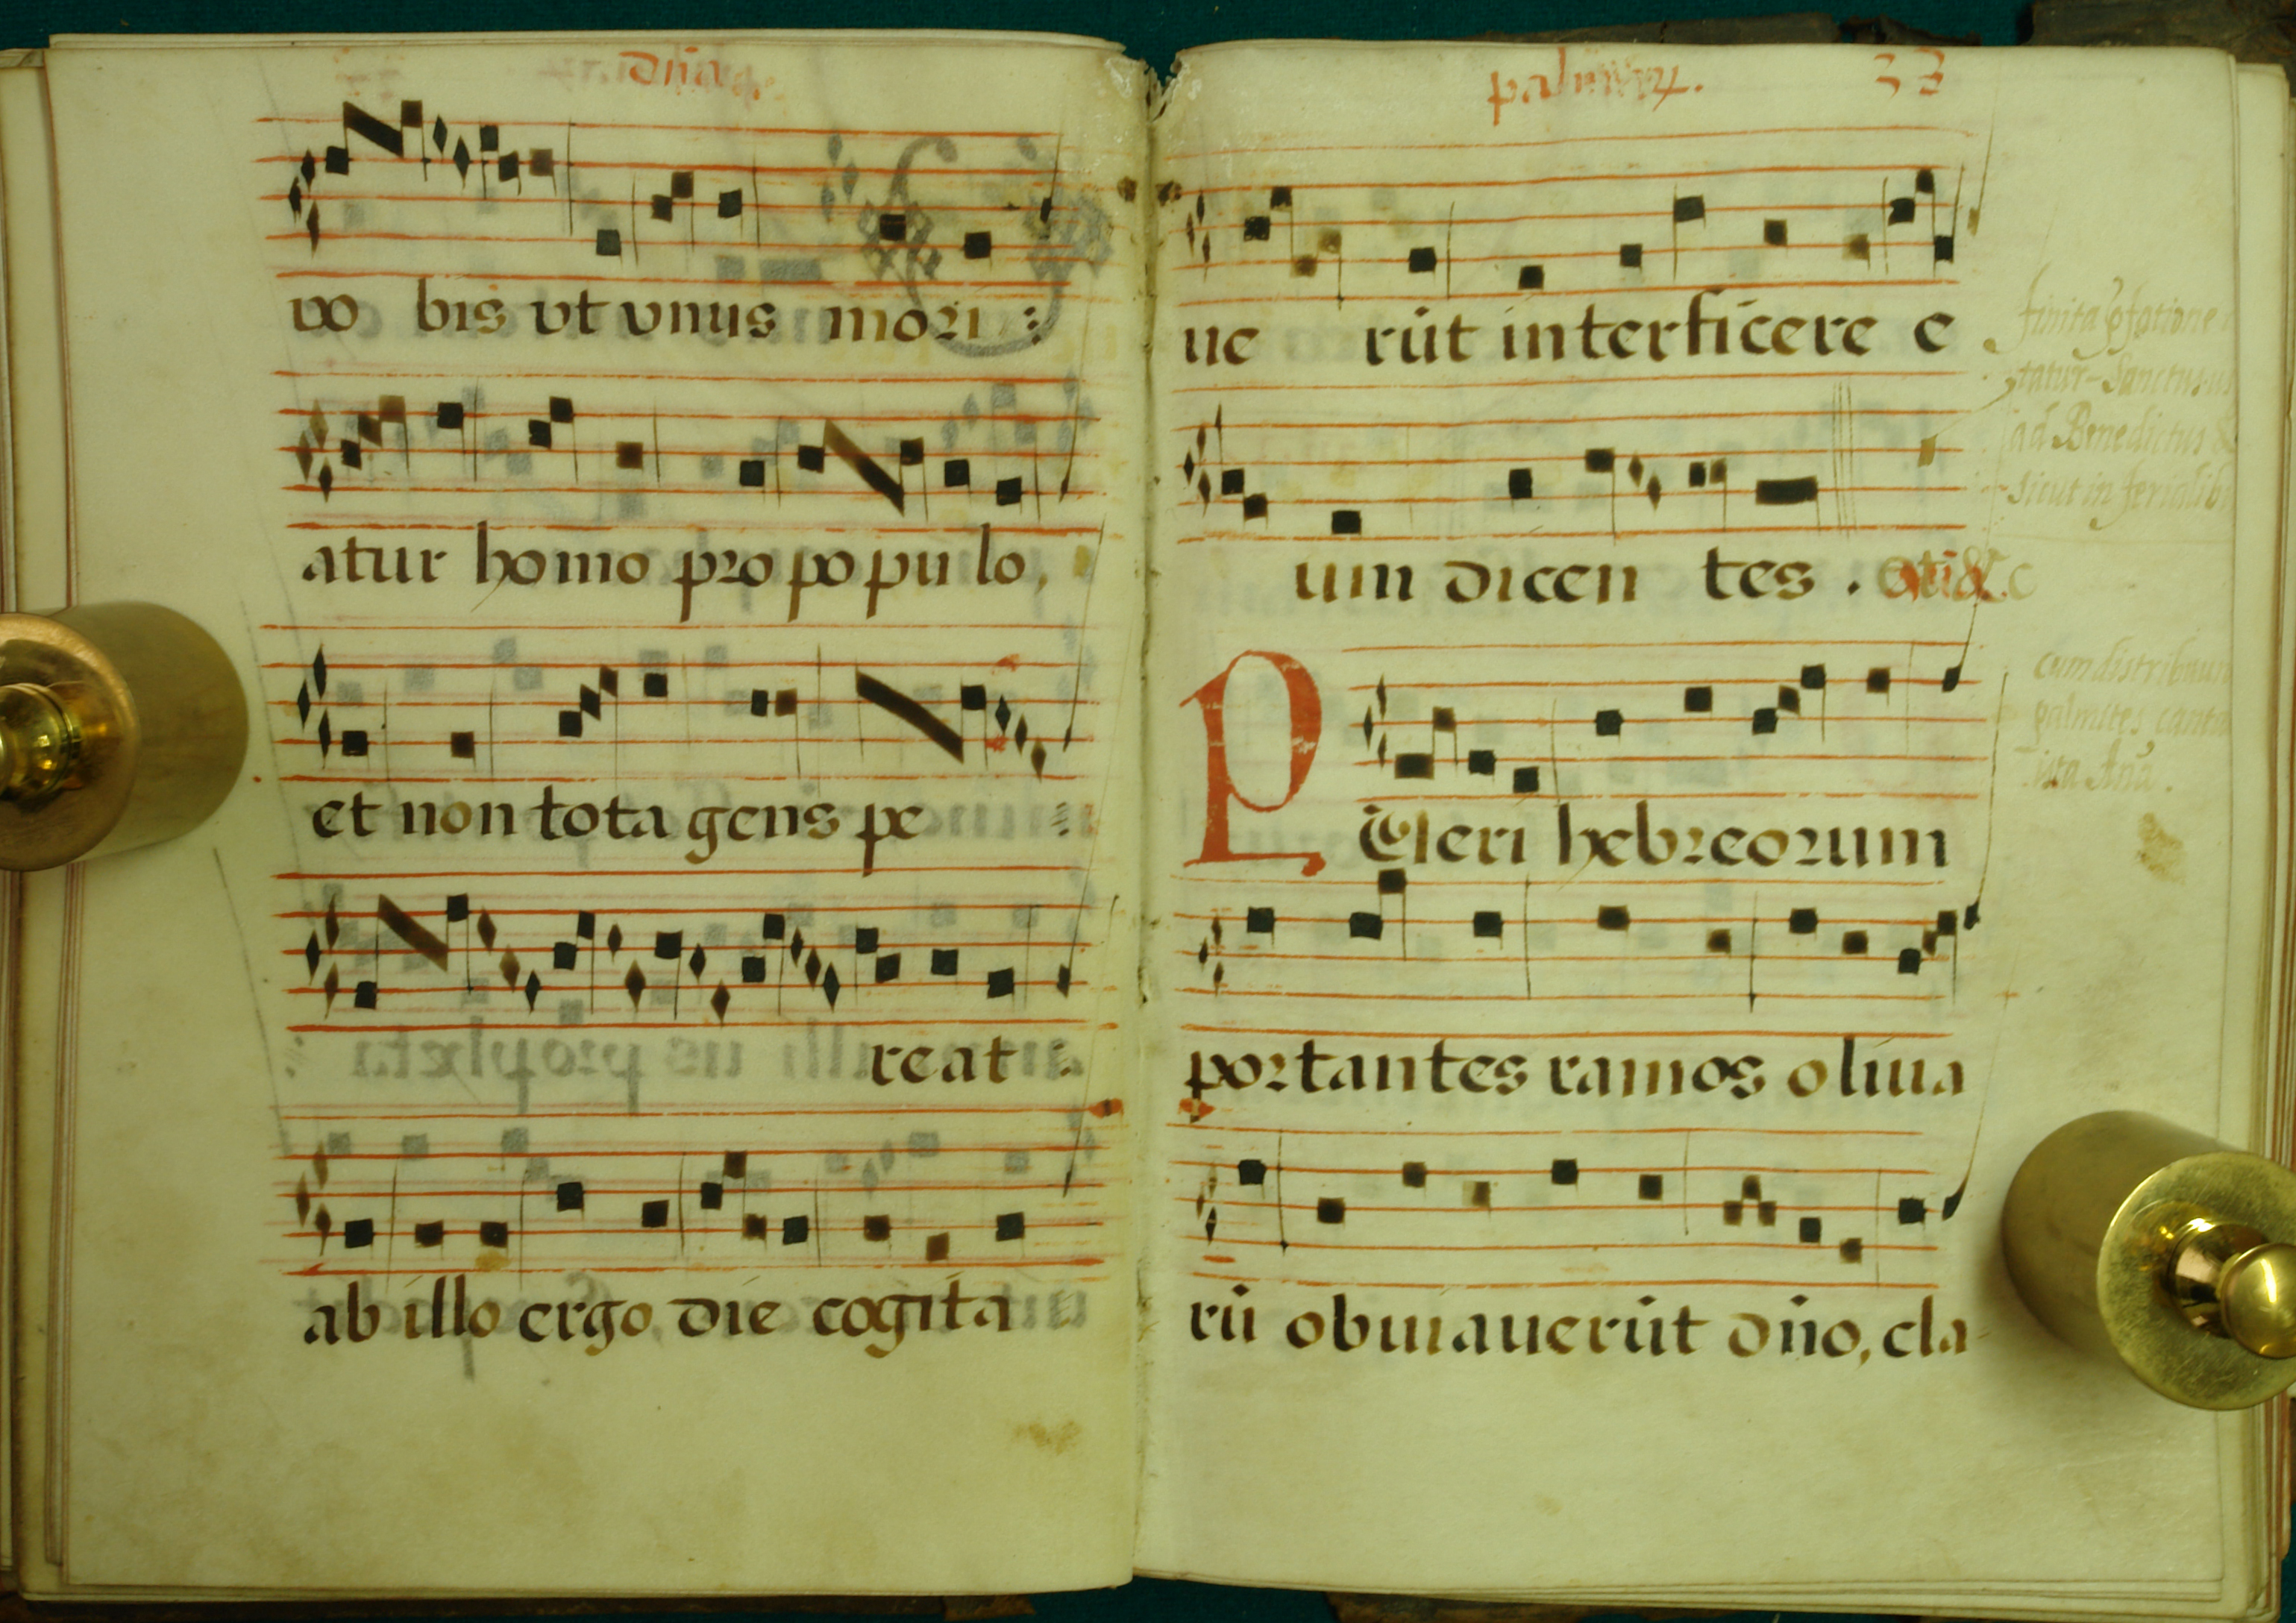 dñica
vo bis vt vnus mori :
atur homo pro po pu lo,
et non tota gens pe :
reat :
ab illo ergo die cogita
palmarꝝ. 33
ue rūt interficere e
um dicen tes .
PUeri hebreorum
portantes ramos oliua
rū obuiauerūt dño, cla
finita
tatur Sanctus
ad Benedictus
sicut in ferialib
cum distribuun
palmites canta
ista Anã.